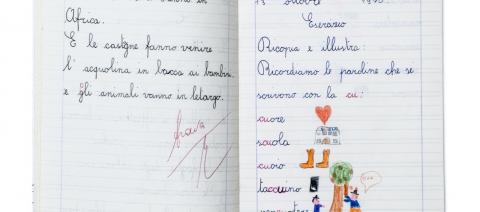 vanno in
Africa.
E le castgne fanno venire
l' acquolina in bocca ai bambini
e gli animali vanno in letargo.
brava
ottobre
Esercizio
Ricopia e illustra:
Ricordiamo le paroline che se
scrivono con la cu:
cuore
scuola
cuoio
taccuino